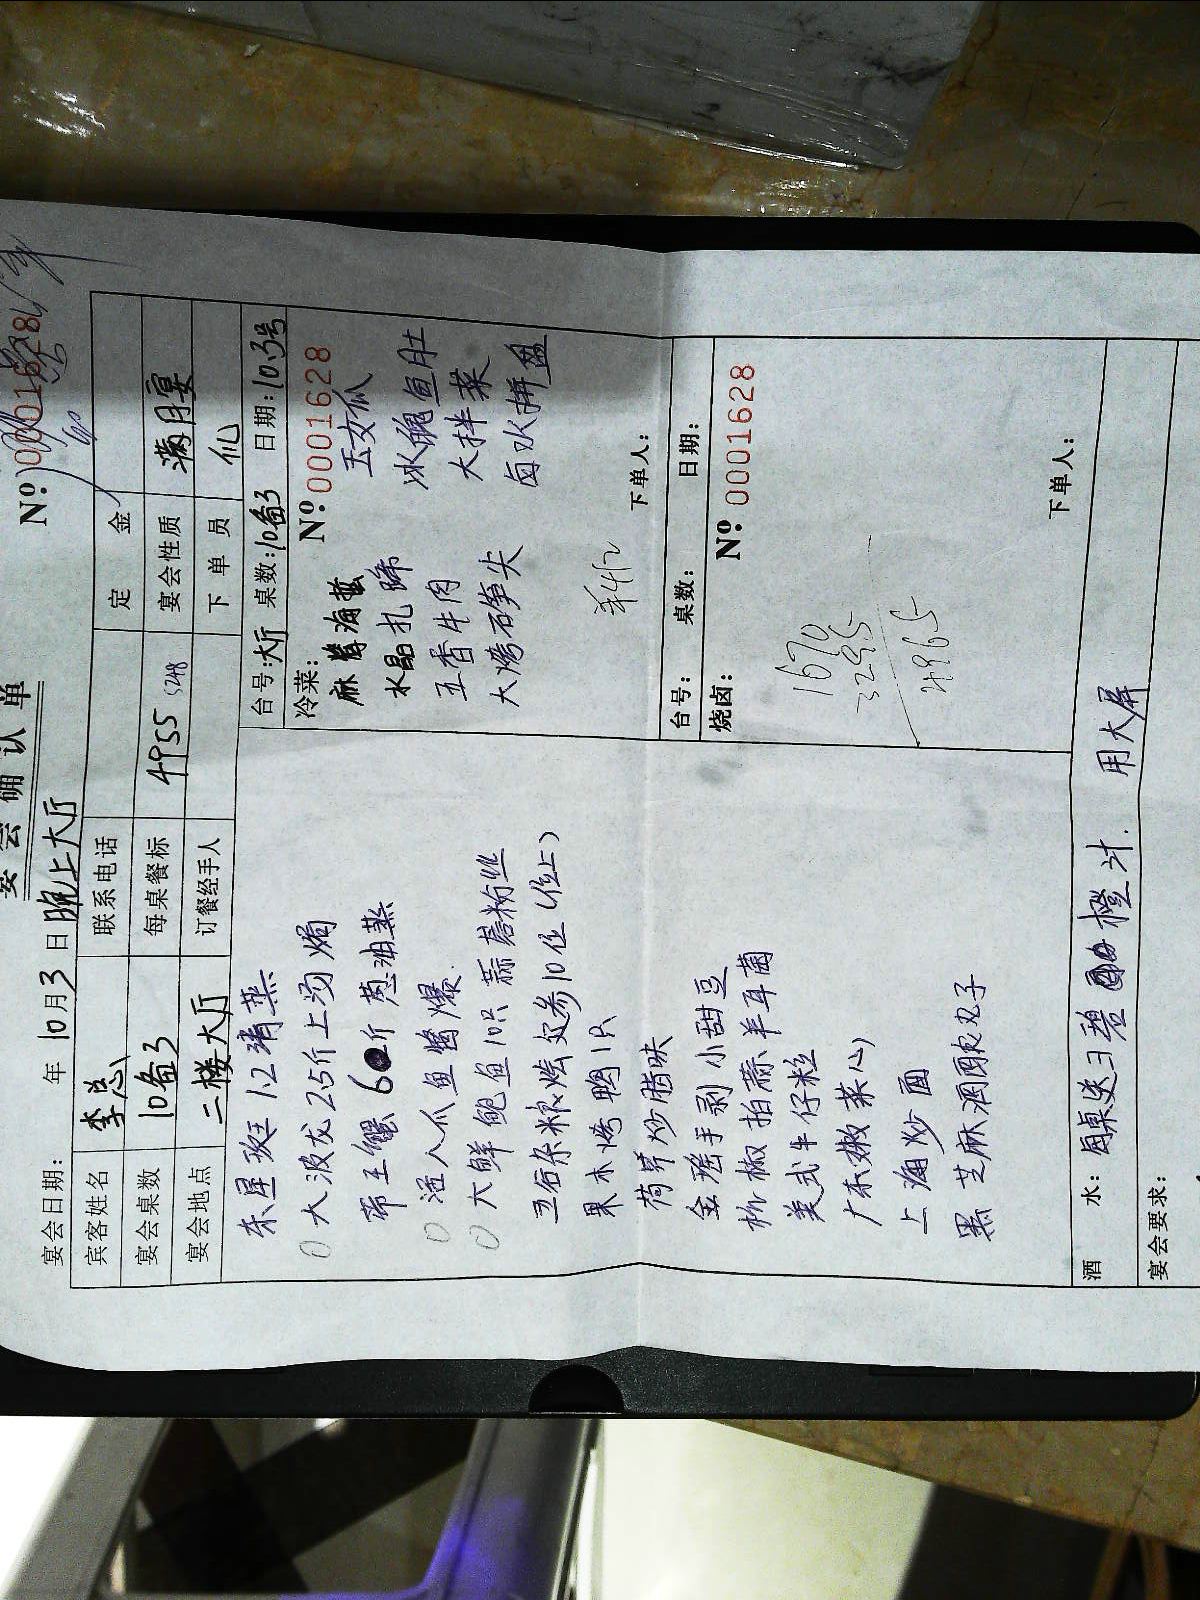 宴会确认单
Nº 0001628
宴会日期： 年 10月3日 晚上大厅
宾客姓名 李总 联系电话 定金
宴会桌数 10备3 每桌餐标 4955 5248 宴会性质 满月宴
宴会地点 二楼大厅 订餐经手人 下单员
东星斑 1.2 清蒸
大波龙 2.5斤上汤焗
帝王蟹 6斤 葱油蒸
活八爪鱼酱爆
大鲜鲍鱼10只 蒜蓉粉丝
五谷杂粮烩辽参10位（位上）
果木烤鸭1只
荷芹炒腊味
金瑶手剥小甜豆
杭椒拍蒜羊耳菌
美式牛仔粒
广东嫩菜心
上海炒面
黑芝麻酒酿丸子
台号：大厅 桌数：10备3 日期：10.3号
冷菜： Nº 0001628
麻酱海蜇 玉女瓜
水晶扎蹄 冰魄鱼肚
五香牛肉 大拌菜
大烤石笋尖 卤水拼盘
下单人：
台号： 桌数： 日期：
烧卤： Nº 0001628
1670
3295
4965
下单人：
酒水： 每桌送王碧 橙汁. 用大屏
宴会要求：